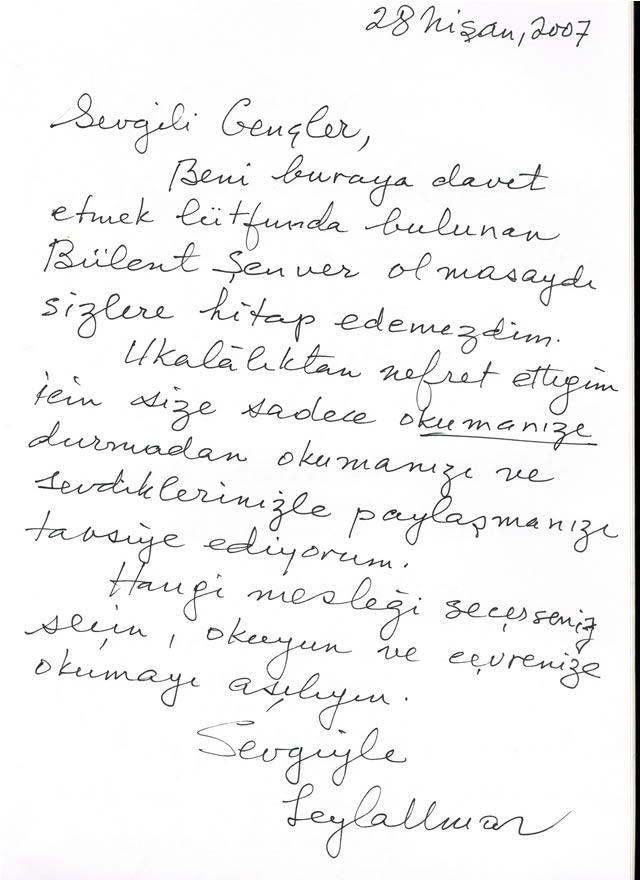 28 Nisan, 2007
Sevgili Gençler,
Beni buraya davet
etmek lütfunda bulunan
Bülent Şenver olmasaydı
sizlere hitap edemezdim.
Ukalâlıktan nefret ettiğim
için size sadece okumanızı
durmadan okumanızı ve
sevdiklerinizle paylaşmanızı
tavsiye ediyorum.
Hangi mesleği seçerseniz
seçin, okuyun ve çevrenize
okumayı aşılıyın.
Sevgiyle
Leyla Umar